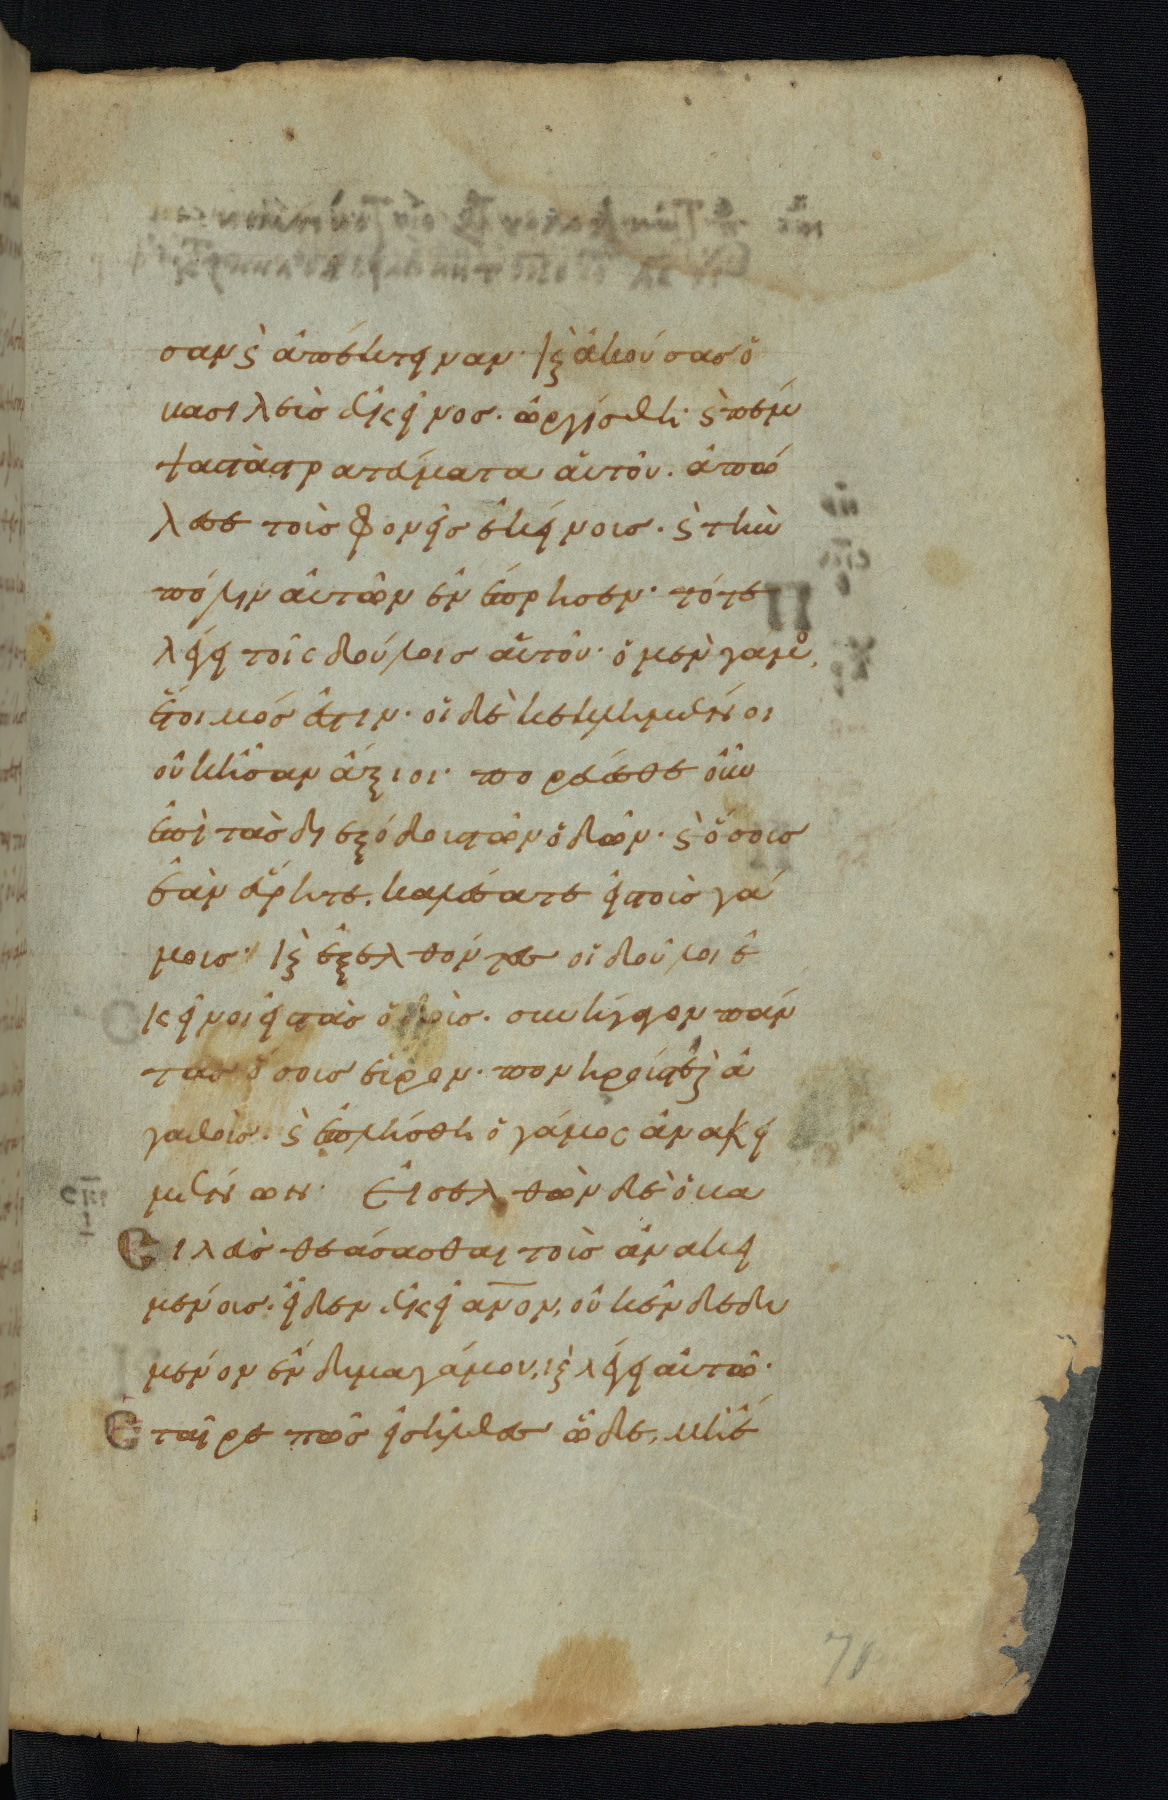 σαν ϗ ἀπέκτειναν· κ(αὶ) ἀκούσας ὁ
βασιλεὺς ἐκεῖνος. ὠργίσθη· ϗ πέμ
ψας τὰ στρατεύματα αὐτοῦ. ἀπώ
λεσε τοὺς φονεῖς ἐκείνους. ϗ τὴν
πόλιν αὐτῶν ἐνέπρησεν· τότε
λέγει τοῖς δούλοις αὐτοῦ· ὁ μὲν γάμο(ς),
ἕτοιμός ἐστιν· οἱ δὲ κεκλημένοι
οὐκ ἦσαν ἄξιοι· πορεύεσθε οὖν
ἐπὶ τὰς διεξόδους τῶν ὁδῶν· ϗ ὅσους
ἐὰν εὕρητε, καλέσατε εἰς τοὺς γά
μους· κ(αὶ) ἐξελθόντες οἱ δοῦλοι ἐ
κεῖνοι εἰς τὰς ὁδοὺς. συνήγαγον πάν
τας ὅσους εὗρον· πονηρούς τε κ(αὶ) ἀ
γαθοὺς. ϗ ἐπλήσθη ὁ γάμος ἀνακει
μένων· Εἰσελθὼν δὲ ὁ βα
Σιλεὺς θεάσασθαι τοὺς ἀνακει
μένους. εἶδεν ἐκεῖ ἀν̅ον, οὐκ ἐνδεδυ
μένον ἔνδυμα γάμου, κ(αὶ) λέγει αὐτῶ·
Ἑταῖρε πῶς εἰσῆλθες ὧδε, μὴ ἔ
70